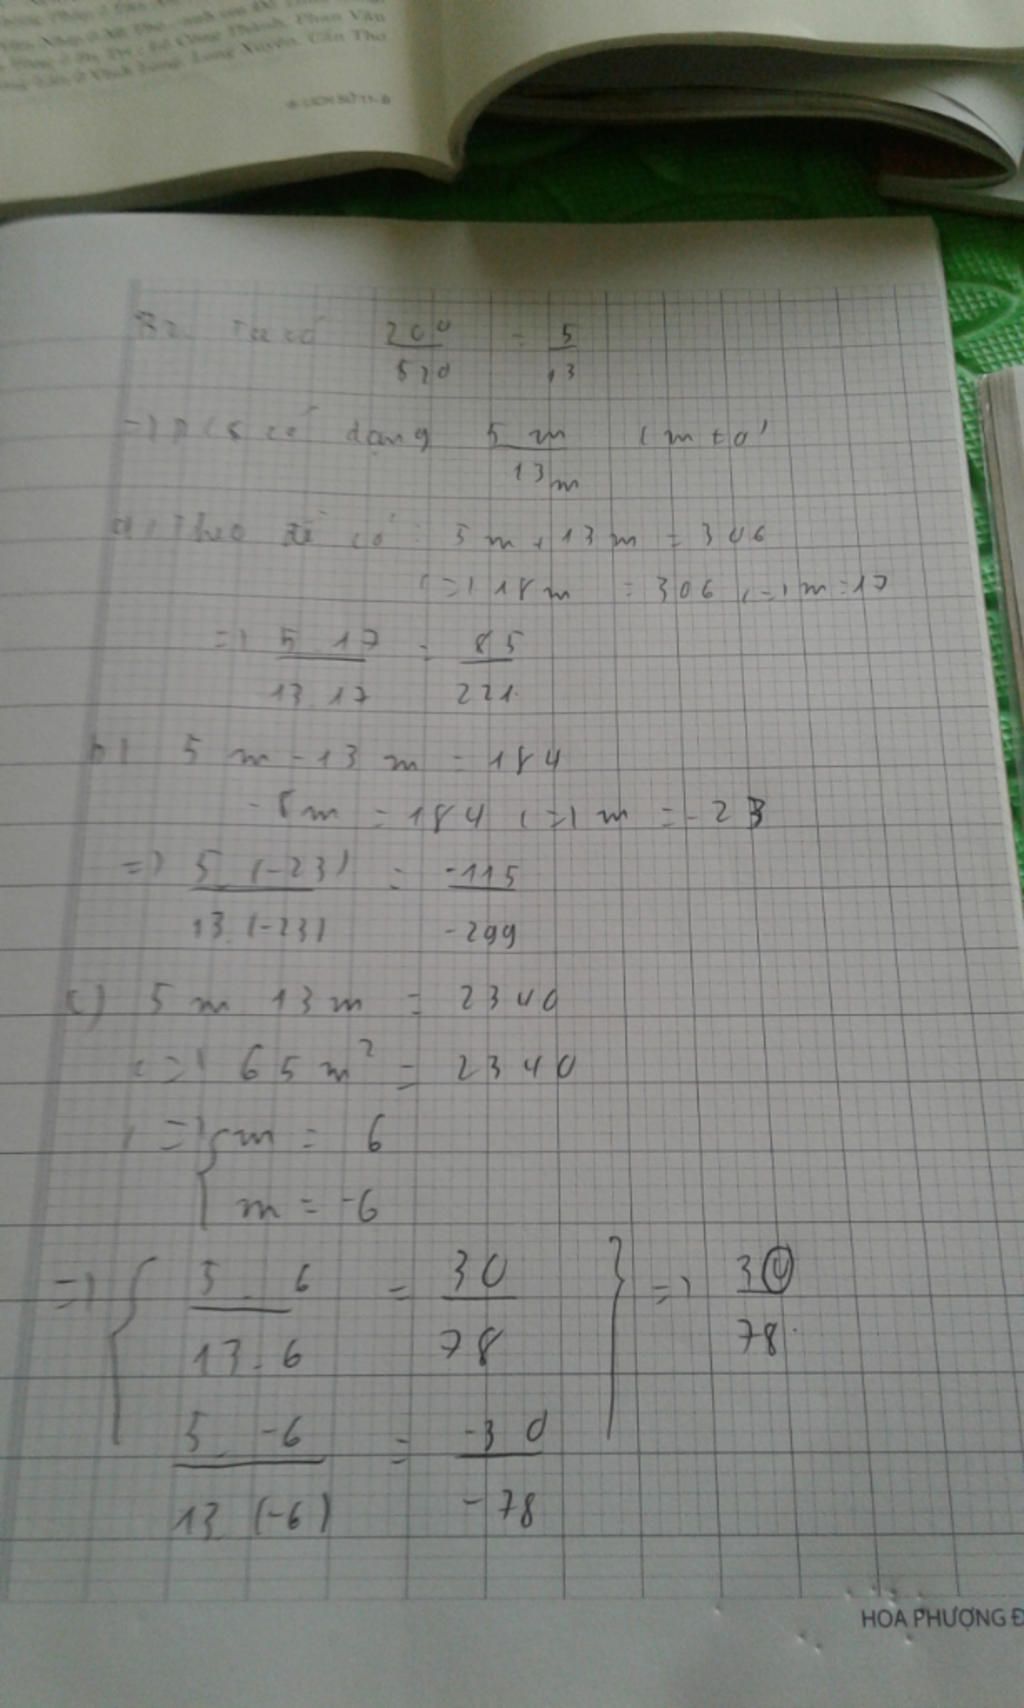 Long Xuyên, Cần Thơ
6-LỊCH SỬ 11-B
Ta có 200/520 = 5/13
=) p/s có dạng 5m/13m (m ≠ 0)
a) Theo đề có: 5m + 13m = 306
(=) 18m = 306 (=) m = 17
=) 5.17/13.17 = 85/221
b) 5m - 13m = 184
-8m = 184 (=) m = -23
=) 5.(-23)/13.(-23) = -115/-299
c) 5m 13m = 2340
(=) 65m² = 2340
(=) { m = 6
m = -6
=) { 5.6/13.6 = 30/78 } =) 30/78
5.-6/13.(-6) = -30/-78
HOA PHƯỢNG Đ